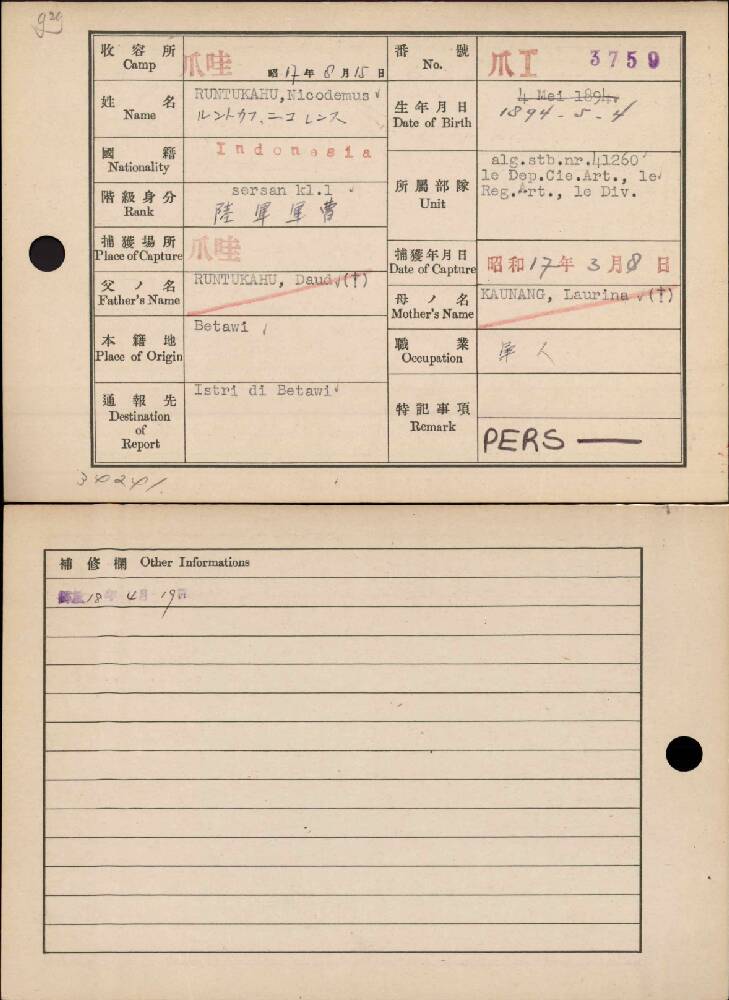 収容所
Camp
爪哇
昭17年8月15日
番號
No.
爪I 3759
姓名
Name
RUNTUKAHU,Nicodemus
ルントカフ、ニコレンス
生年月日
Date of Birth
4 Mei 1894
1894-5-4
國籍
Nationality
Indonesia
階級身分
Rank
sersan kl.1
陸軍軍曹
所屬部隊
Unit
alg.stb.nr.41260
le Dep.Cie.Art., le
Reg.Art., le Div.
捕獲場所
Place of Capture
爪哇
捕獲年月日
Date of Capture
昭和17年3月8日
父ノ名
Father's Name
RUNTUKAHU, Daud (†)
母ノ名
Mother's Name
KAUNANG, Laurina (†)
本籍地
Place of Origin
Betawi
職業
Occupation
軍人
通報先
Destination
of
Report
Istri di Betawi
特記事項
Remark
PERS —
補修欄 Other Informations
18年4月19日